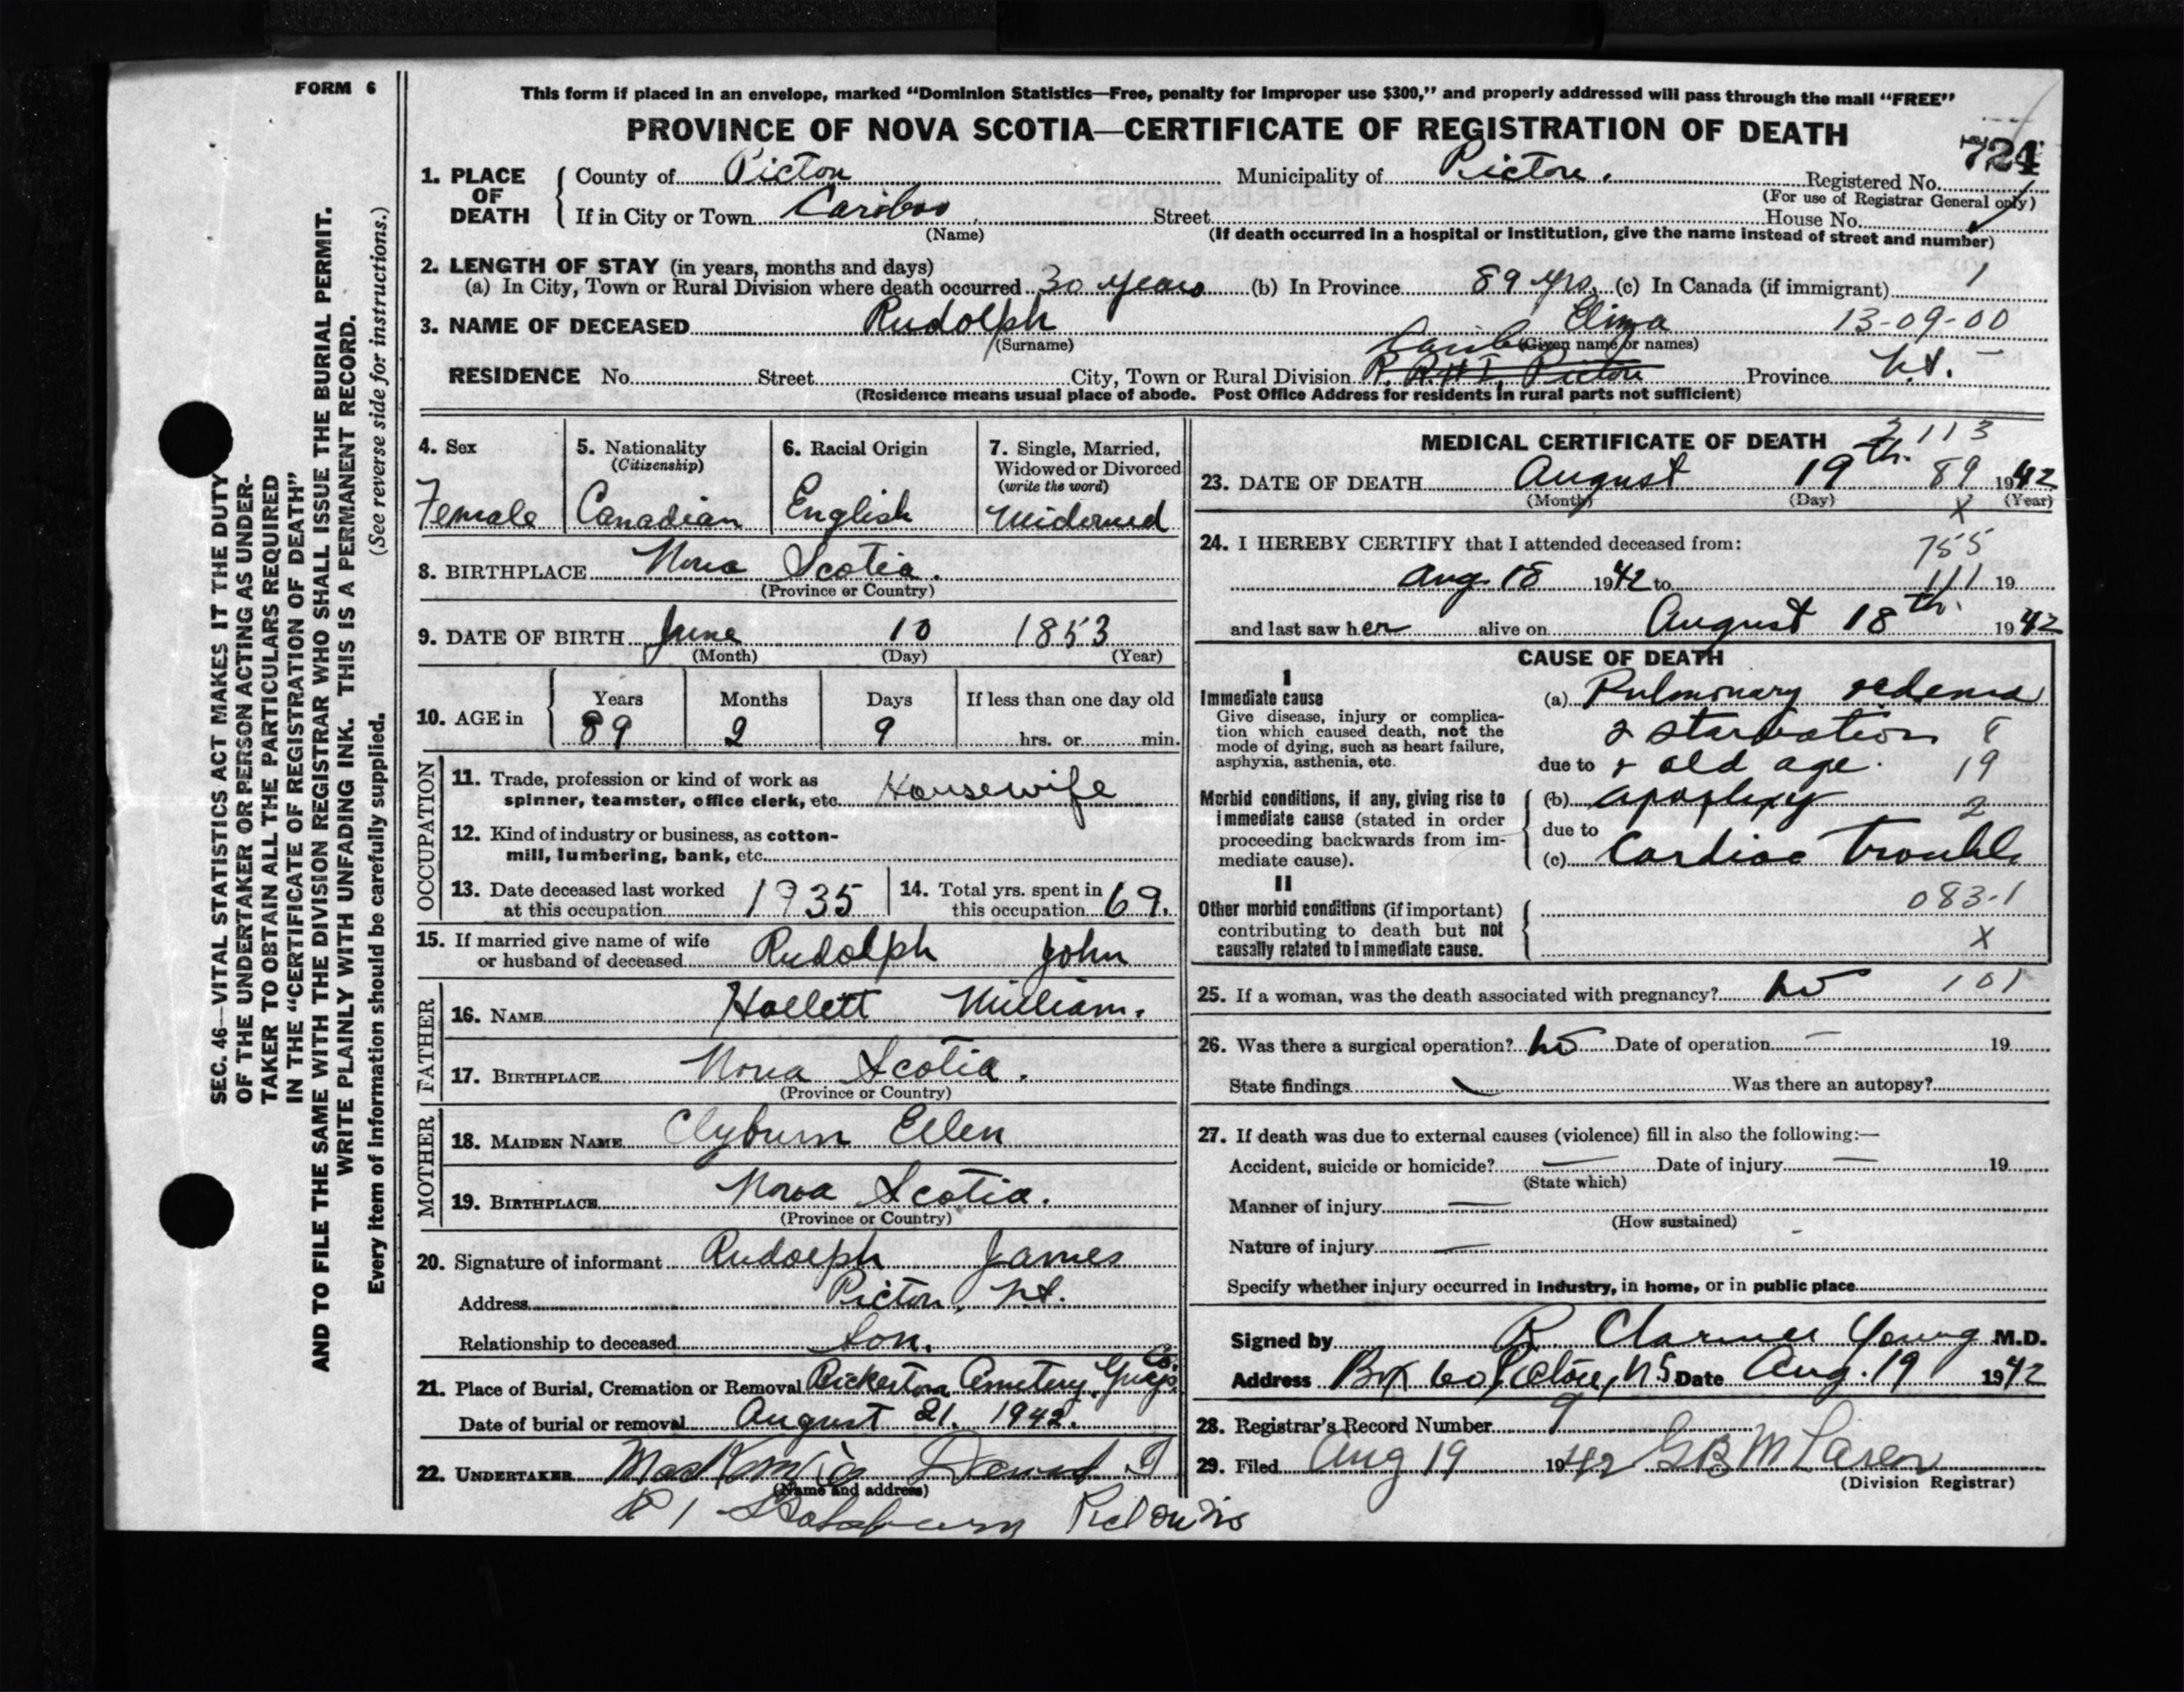 FORM 6
This form if placed in an envelope, marked "Dominion Statistics—Free, penalty for improper use $300," and properly addressed will pass through the mail "FREE"
PROVINCE OF NOVA SCOTIA—CERTIFICATE OF REGISTRATION OF DEATH
724
1. PLACE OF DEATH
County of Pictou Municipality of Pictou. Registered No.
(For use of Registrar General only)
If in City or Town Cariboo Street House No.
(Name) (If death occurred in a hospital or institution, give the name instead of street and number)
2. LENGTH OF STAY (in years, months and days)
(a) In City, Town or Rural Division where death occurred 30 years (b) In Province 89 yrs. (c) In Canada (if immigrant) 1
3. NAME OF DECEASED Rudolph Eliza 13-09-00
(Surname) (Given name or names)
RESIDENCE No. Street City, Town or Rural Division R.R.#1, Pictou Province N.S.
(Residence means usual place of abode. Post Office Address for residents in rural parts not sufficient)
SEC. 46—VITAL STATISTICS ACT MAKES IT THE DUTY
OF THE UNDERTAKER OR PERSON ACTING AS UNDER-
TAKER TO OBTAIN ALL THE PARTICULARS REQUIRED
IN THE "CERTIFICATE OF REGISTRATION OF DEATH"
AND TO FILE THE SAME WITH THE DIVISION REGISTRAR WHO SHALL ISSUE THE BURIAL PERMIT.
WRITE PLAINLY WITH UNFADING INK. THIS IS A PERMANENT RECORD.
Every item of information should be carefully supplied. (See reverse side for instructions.)
4. Sex
Female
5. Nationality
(Citizenship)
Canadian
6. Racial Origin
English
7. Single, Married,
Widowed or Divorced
(write the word)
Widowed
8. BIRTHPLACE Nova Scotia.
(Province or Country)
9. DATE OF BIRTH June 10 1853
(Month) (Day) (Year)
10. AGE in
Years Months Days If less than one day old
89 2 9 hrs. or min.
OCCUPATION
11. Trade, profession or kind of work as
spinner, teamster, office clerk, etc. Housewife
12. Kind of industry or business, as cotton-
mill, lumbering, bank, etc.
13. Date deceased last worked
at this occupation 1935
14. Total yrs. spent in
this occupation 69.
15. If married give name of wife
or husband of deceased Rudolph John
FATHER
16. NAME Hallett William.
17. BIRTHPLACE Nova Scotia.
(Province or Country)
MOTHER
18. MAIDEN NAME Clyburn Ellen
19. BIRTHPLACE Nova Scotia.
(Province or Country)
20. Signature of informant Rudolph James
Address Pictou, N.S.
Relationship to deceased Son.
21. Place of Burial, Cremation or Removal Bickerton Cemetery, Guys. Co.
Date of burial or removal August 21. 1942.
22. UNDERTAKER MacKenzie
(Name and address)
R 1 Pictou NS
MEDICAL CERTIFICATE OF DEATH
2113
23. DATE OF DEATH August 19th. 89 1942
(Month) (Day) (Year)
X
24. I HEREBY CERTIFY that I attended deceased from:
755
Aug 18 1942 to 111 19
and last saw her alive on August 18th. 1942
CAUSE OF DEATH
I
Immediate cause
Give disease, injury or complica-
tion which caused death, not the
mode of dying, such as heart failure,
asphyxia, asthenia, etc.
(a) Pulmonary oedema
& starvation 8
due to & old age. 19
Morbid conditions, if any, giving rise to
immediate cause (stated in order
proceeding backwards from im-
mediate cause).
(b) apoplexy 2
due to
(c) Cardiac trouble
II
Other morbid conditions (if important)
contributing to death but not
causally related to immediate cause.
083.1
X
25. If a woman, was the death associated with pregnancy? no 101
26. Was there a surgical operation? no Date of operation — 19
State findings Was there an autopsy?
27. If death was due to external causes (violence) fill in also the following:—
Accident, suicide or homicide? — Date of injury — 19
(State which)
Manner of injury —
(How sustained)
Nature of injury —
Specify whether injury occurred in industry, in home, or in public place
Signed by R. Clarence Young M.D.
Address Box 60 Pictou, N.S. Date Aug. 19 1942
28. Registrar's Record Number 9
29. Filed Aug 19 1942 G B McLaren
(Division Registrar)